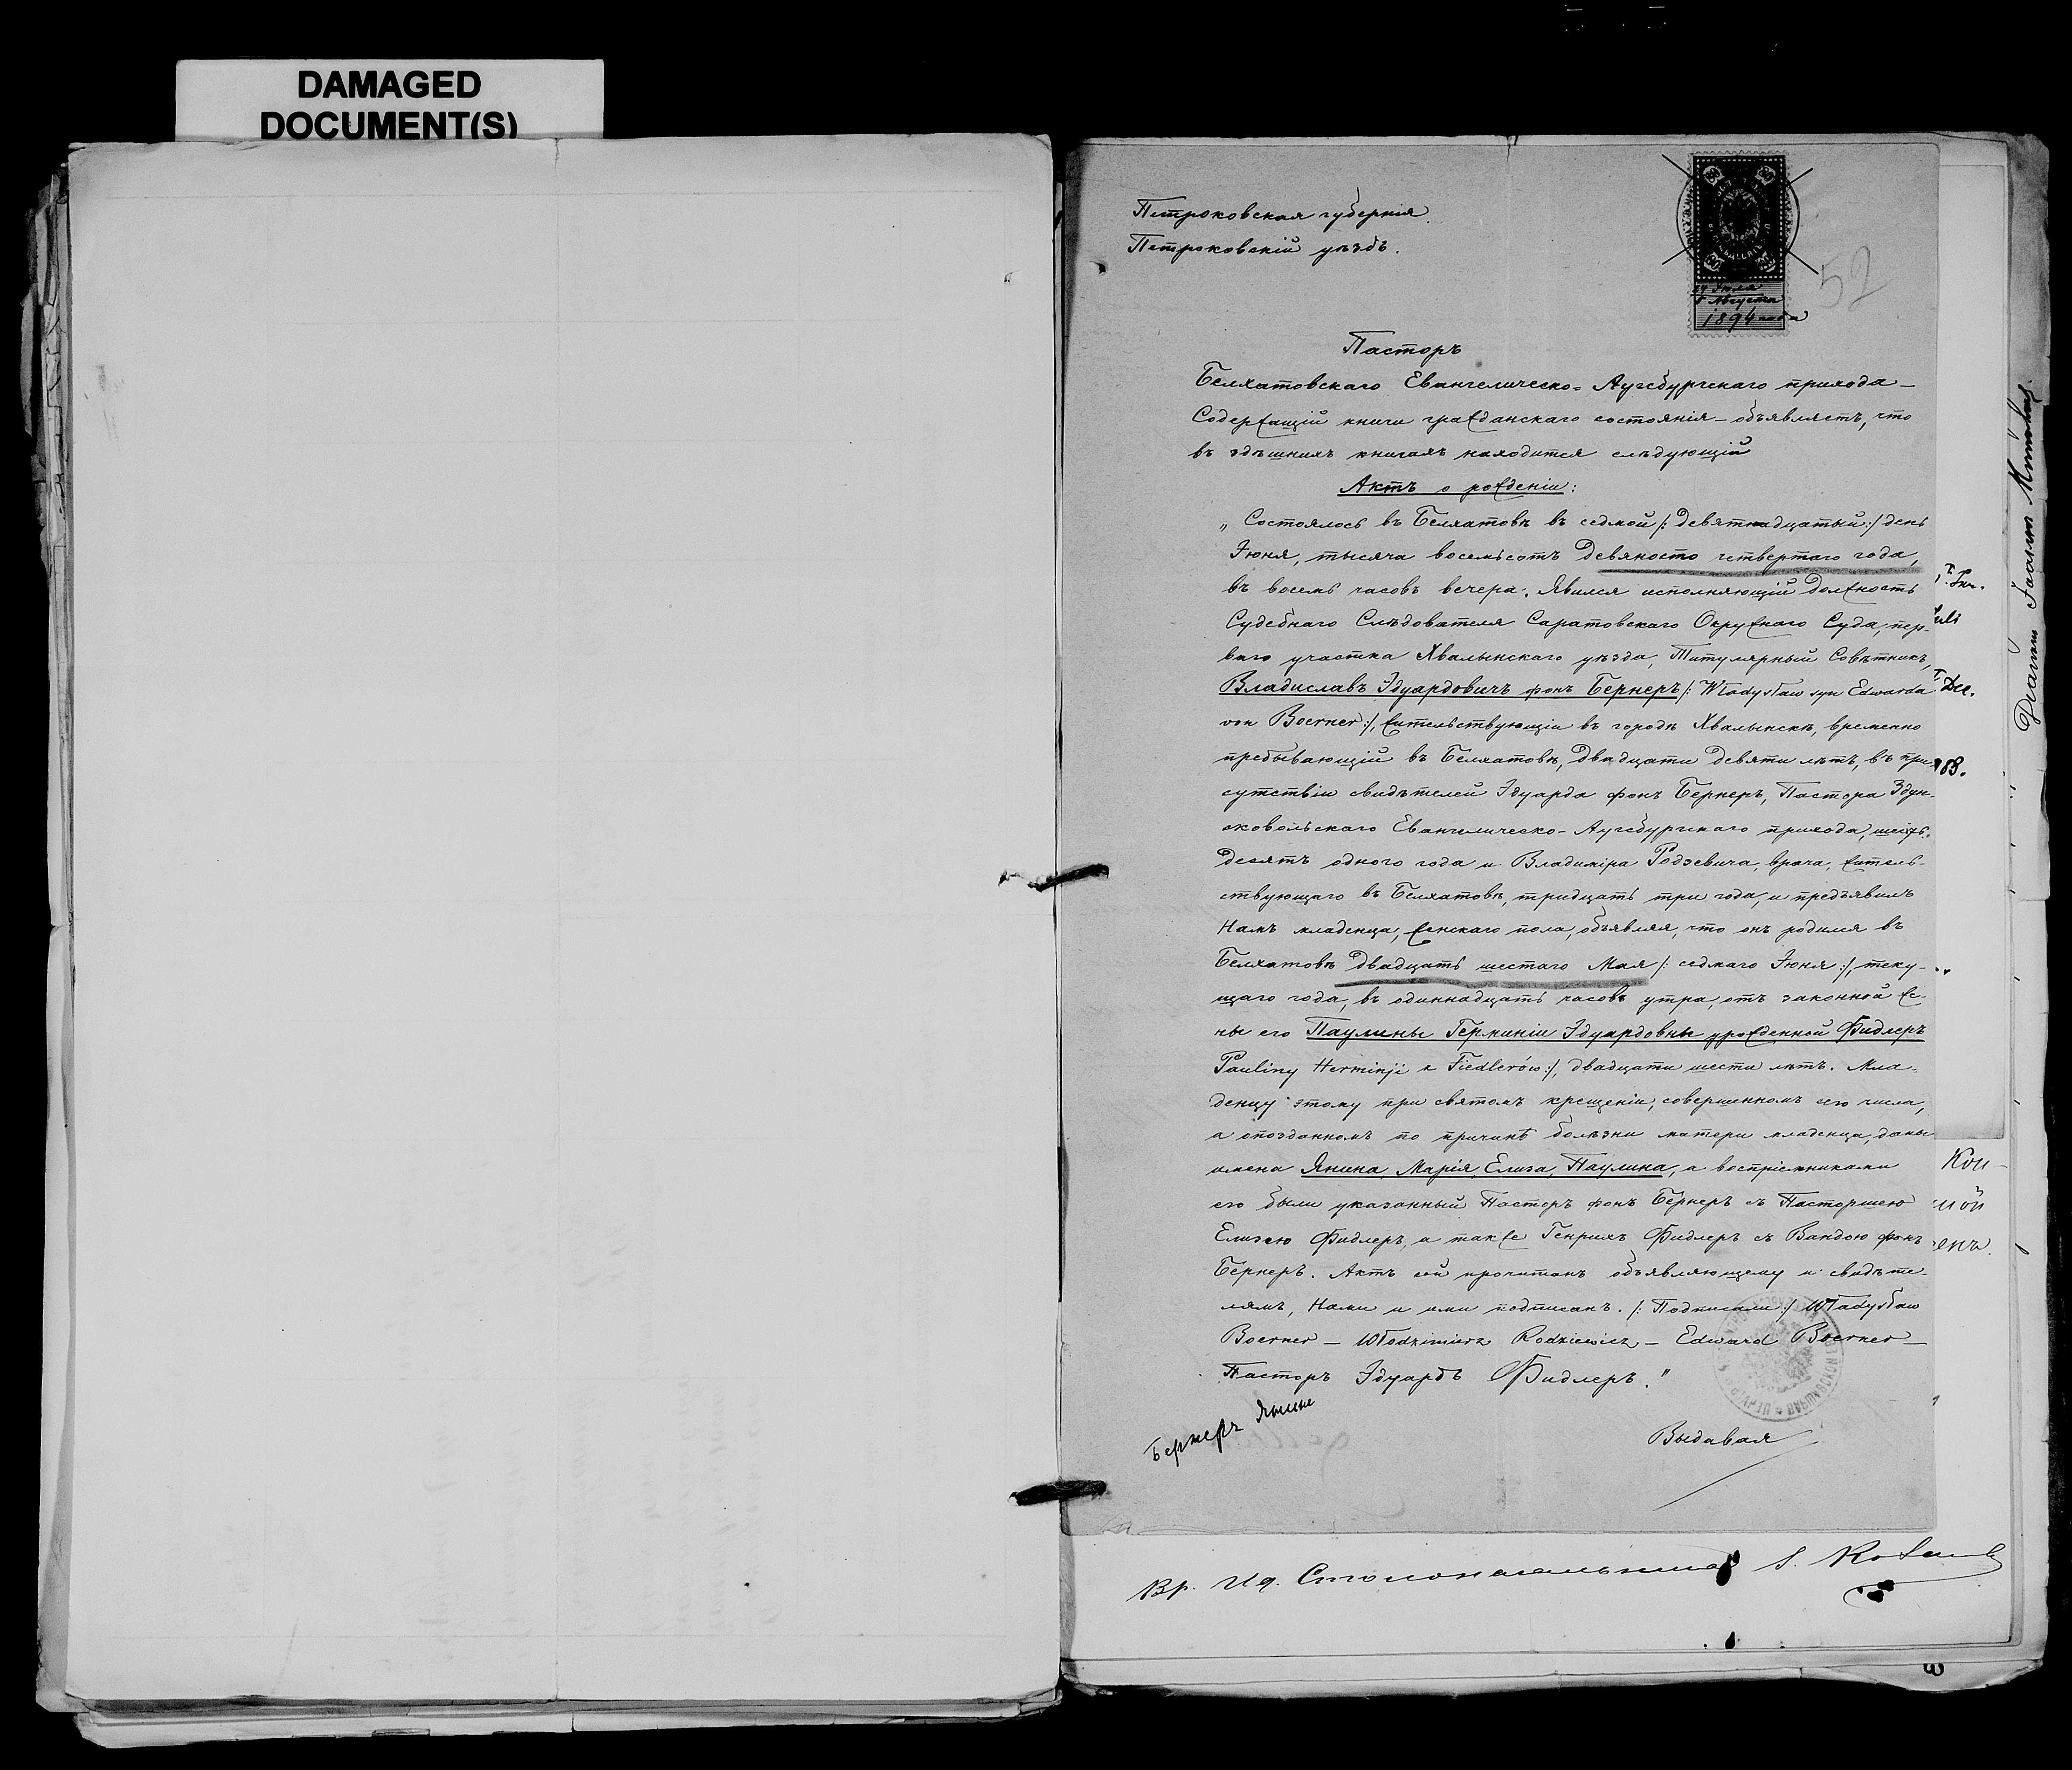 DAMAGED
DOCUMENT(S)
Петроковская губернія.
Петроковскій уѣздъ.
29 Іюля
1894 года
52
Пасторъ
Белхатовскаго Евангелическо-Аугсбургскаго прихода –
Содержащій книги гражданскаго состоянія – объявляетъ, что
въ здѣшнихъ книгахъ находится слѣдующій
Актъ о рожденіи:
„Состоялось въ Белхатовѣ въ седмой /: девятнадцатый :/ день
Іюня, тысяча восемьсотъ девяносто четвертаго года,
въ восемь часовъ вечера. Явился исполняющій должность
Судебнаго Слѣдователя Саратовскаго Окружнаго Суда, пер-
ваго участка Хвалынскаго уѣзда, Титулярный Совѣтникъ,
Владиславъ Эдуардовичъ фонъ Бернеръ /: Władysław syn Edwarda
von Boerner :/, жительствующій въ городѣ Хвалынскѣ, временно
пребывающій въ Белхатовѣ, двадцати девяти лѣтъ, въ при-
сутствіи свидѣтелей Эдуарда фонъ Бернеръ, Пастора Здун-
сковольскаго Евангелическо-Аугсбургскаго прихода, шесть-
десятъ одного года и Владиміра Родзевича, врача, житель-
ствующаго въ Белхатовѣ, тридцать три года, и предъявилъ
Намъ младенца, женскаго пола, объявляя, что онъ родился въ
Белхатовѣ двадцать шестаго Мая /: седмаго Іюня :/, теку-
щаго года, въ одиннадцать часовъ утра, отъ законной же-
ны его Паулины Герминіи Эдуардовны урожденной Фидлеръ
Pauliny Herminji z Fiedlerów :/, двадцати шести лѣтъ. Мла-
денцу этому при святомъ крещеніи, совершенномъ сего числа,
а опозданномъ по причинѣ болѣзни матери младенца, даны
имена Янина, Марія, Елиза, Паулина, а воспріемниками
его были указанный Пасторъ фонъ Бернеръ съ Пасторшею
Елизою Фидлеръ, а также Генрихъ Фидлеръ съ Вандою фонъ
Бернеръ. Актъ сей прочитанъ объявляющему и свидѣте-
лямъ, Нами и ими подписанъ. /: Подписали :/ Władysław
Boerner – Włodzimierz Rodziewicz – Edward Boerner –
Пасторъ Эдуардъ Фидлеръ."
Бернеръ Янина
Выдавая
Вр. Ид. Столоначальника